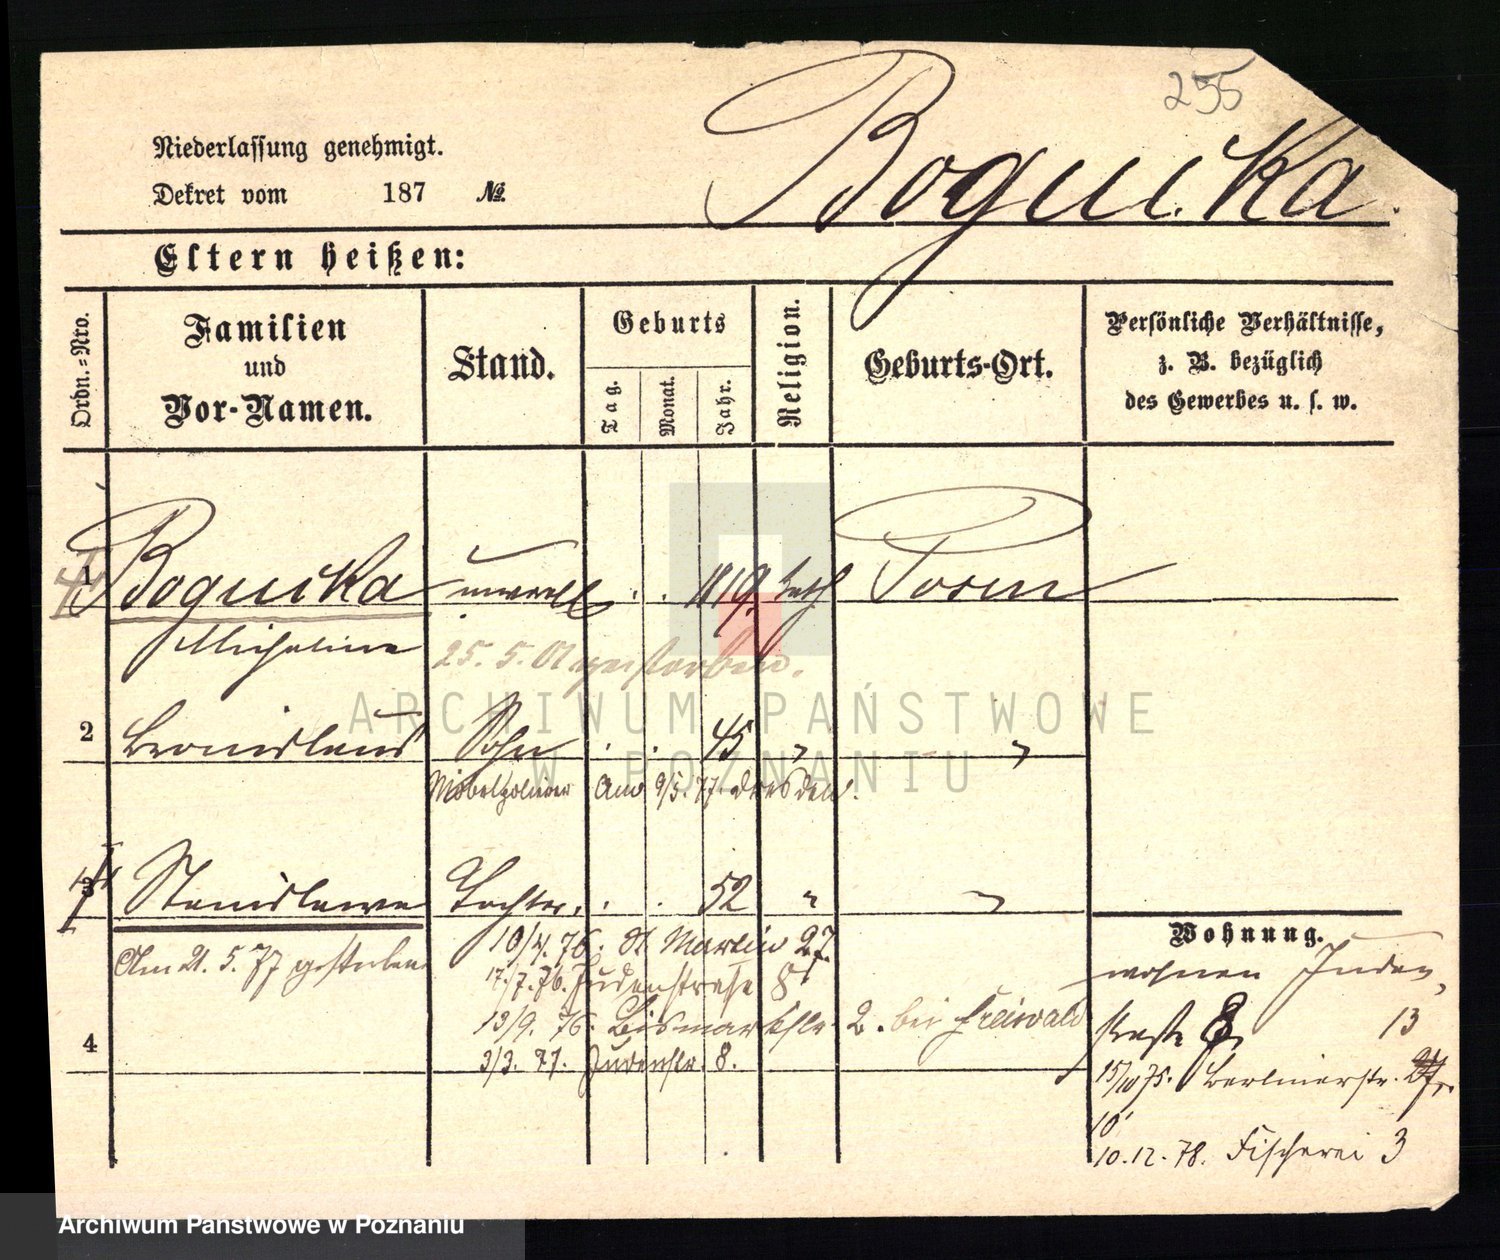 255
Boguicka.
Niederlassung genehmigt.
Dekret vom 187 No.
Eltern heißen:
Ordn.-Nro.
Familien und Vor-Namen.
Stand.
Geburts
Tag.
Monat.
Jahr.
Religion.
Geburts-Ort.
Persönliche Verhältnisse,
z. B. bezüglich
des Gewerbes u. s. w.
1 Boguicka unverehl . . 1819. kath Posen
Micheline
25. 5. gestorben.
2 Bronislaus Sohn . . 45 " "
Möbelpolierer 9/5. 77. Dresden.
3 Stanislawa Tochter. . . 52 " "
Am 21. 5. 77 gestorben
10/4. 76. St Martin 27.
17./7. 76. Judenstrasse 8
13/9. 76. Bismarkstr 2. bei Freiwald
4
3/3. 77. Judenstr. 8.
Wohnung.
wohnen Juden
straße 8, 13
15/10 75. Berlinerstr. 27.
10
10.12.78. Fischerei 3
ARCHIWUM PAŃSTWOWE
W POZNANIU
Archiwum Państwowe w Poznaniu